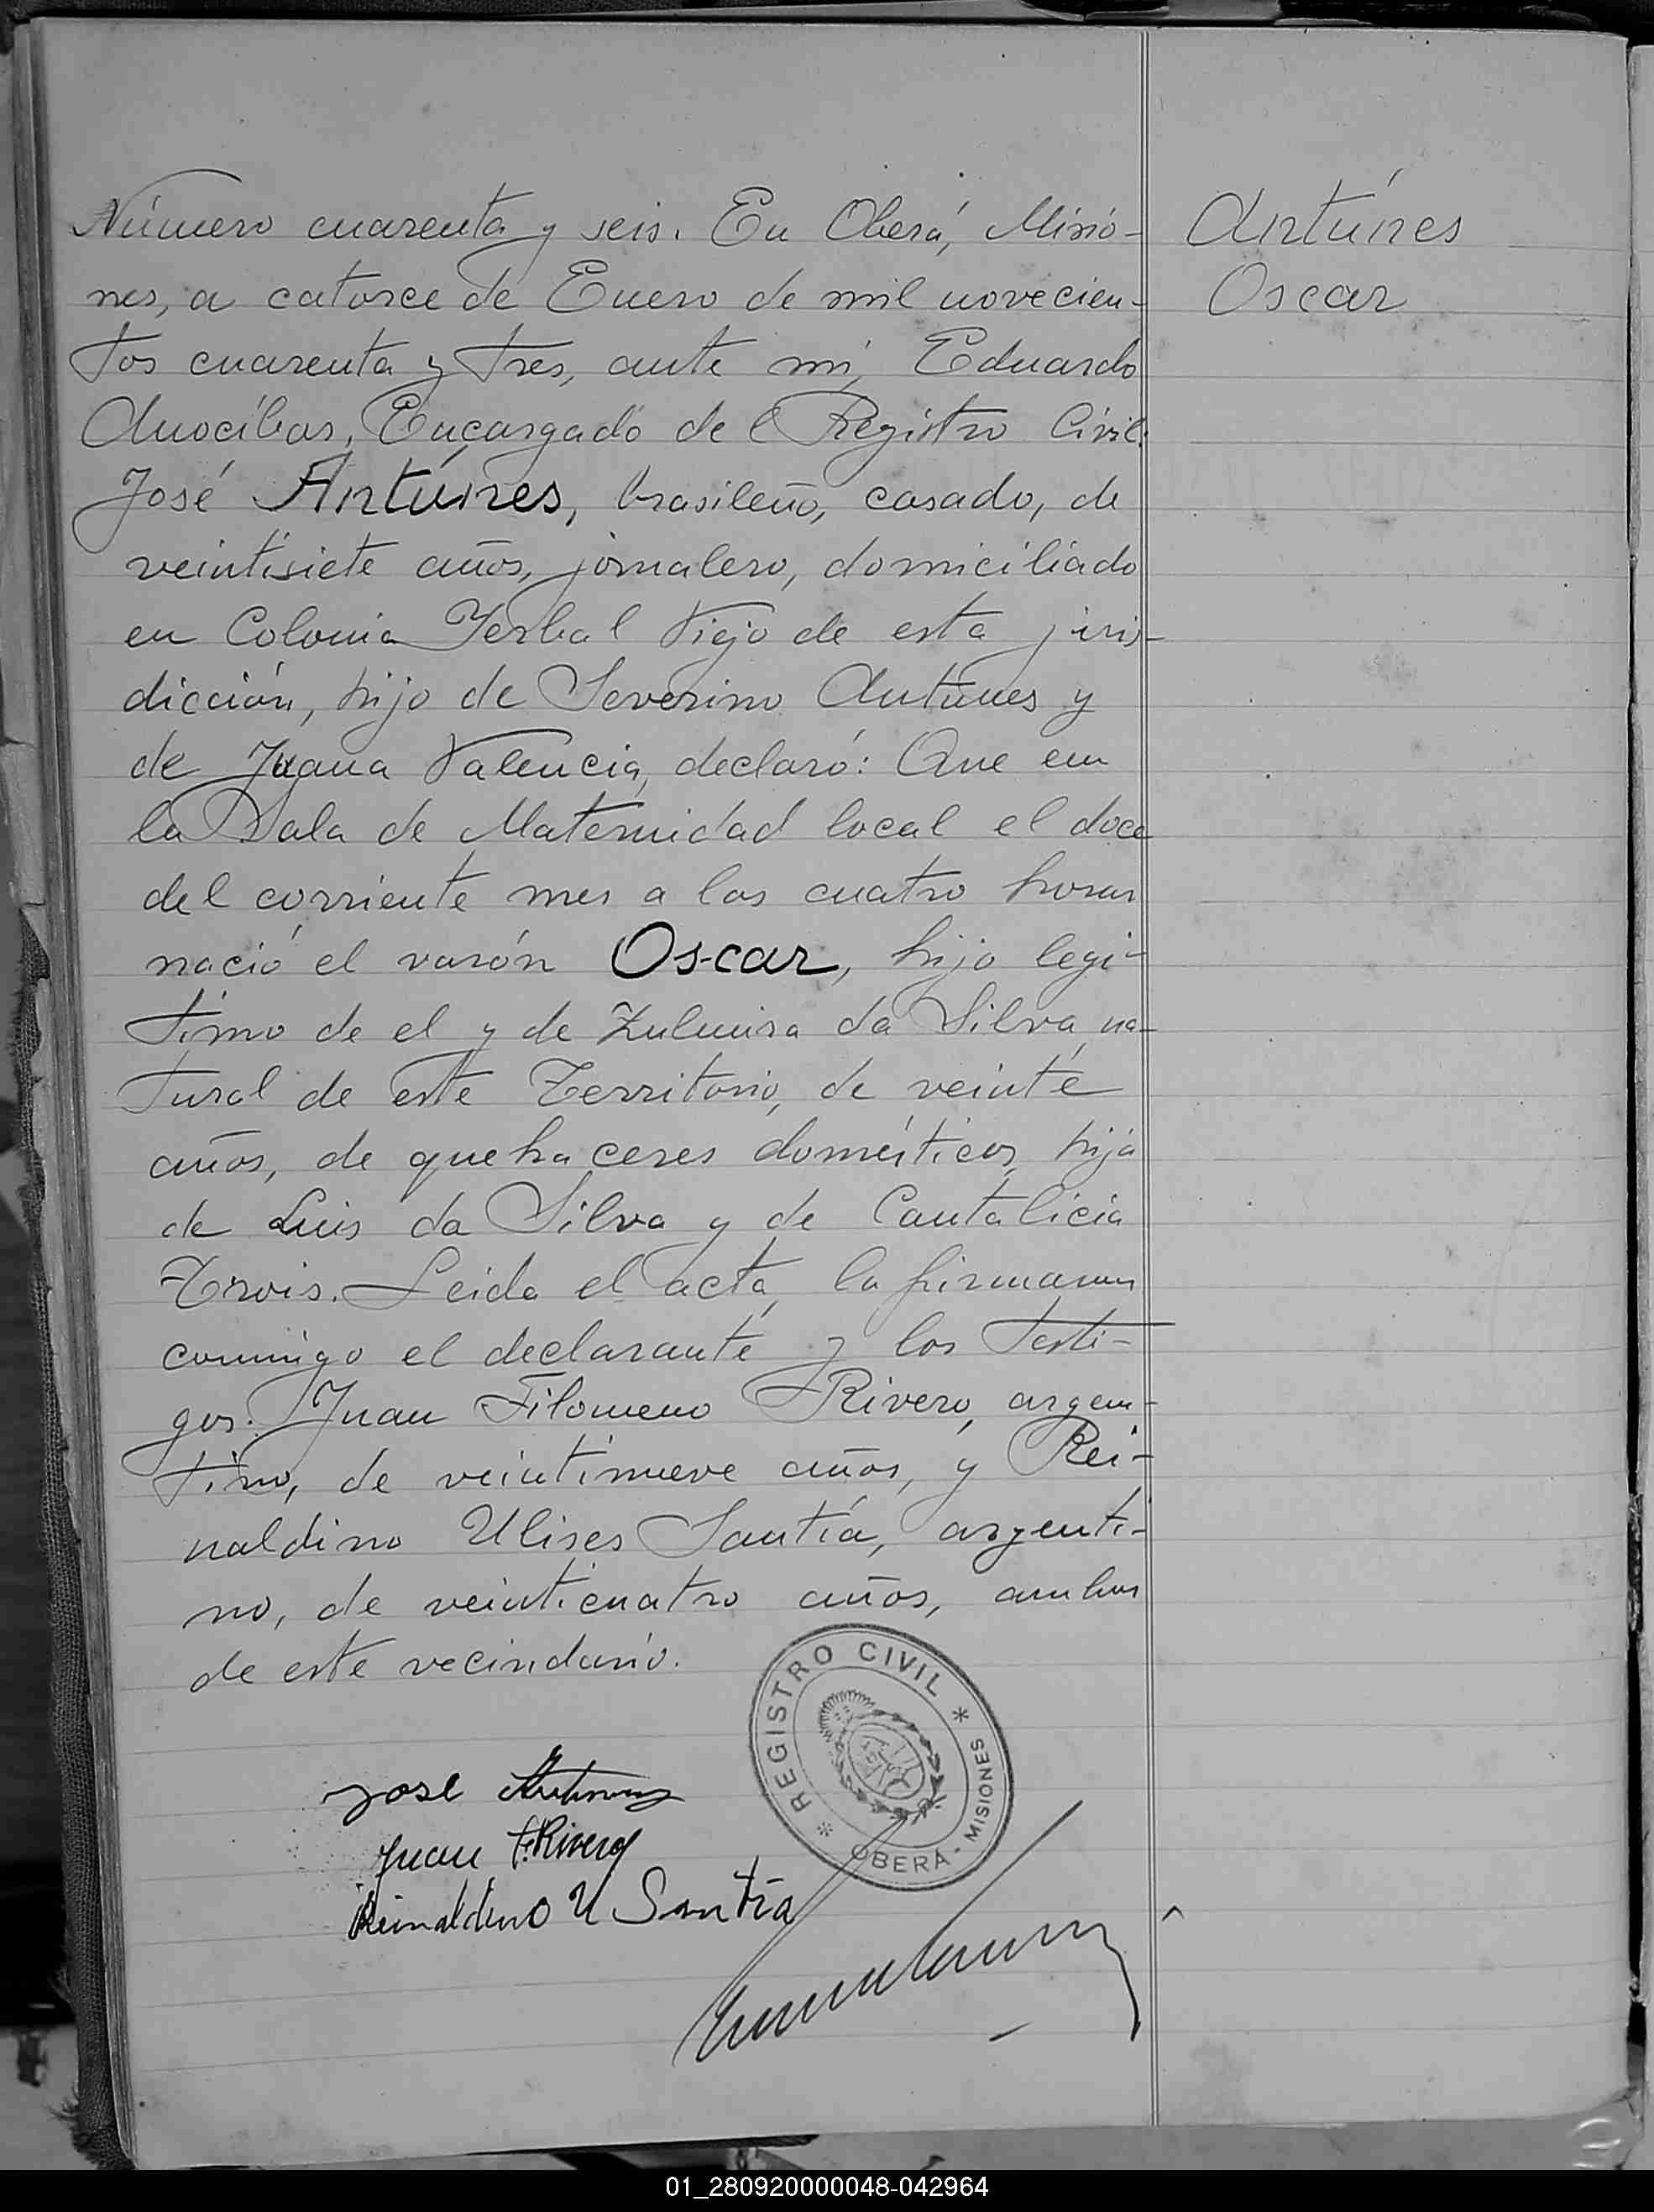 Número cuarenta y seis. En Oberá, Misio-
nes, a catorce de Enero de mil novecien-
tos cuarenta y tres, ante mí, Eduardo
Anocíbar, Encargado del Registro Civil:
José Antúnes, brasileño, casado, de
veintisiete años, jornalero, domiciliado
en Colonia Yerbal Viejo de esta juris-
dicción, hijo de Severino Antúnes y
de Juana Valencia, declaró: Que en
la Sala de Maternidad local el doce
del corriente mes a las cuatro horas
nació el varón Oscar, hijo legí-
timo de el y de Zulmira da Silva, na-
tural de este Territorio, de veinte
años, de quehaceres domésticos, hija
de Luis da Silva y de Cantalicia
Leida el acta, la firmaron
conmigo el declarante y los testi-
gos: Juan Filomeno Rivero, argen-
tino, de veintinueve años, y Rei-
naldino Ulises Santía, argenti-
no, de veinticuatro años, ambos
de este vecindario.
Antúnes
Oscar
REGISTRO CIVIL
OBERÁ - MISIONES
José Antunes
Juan F. Rivero
Reinaldino U Santía
01_280920000048-042964